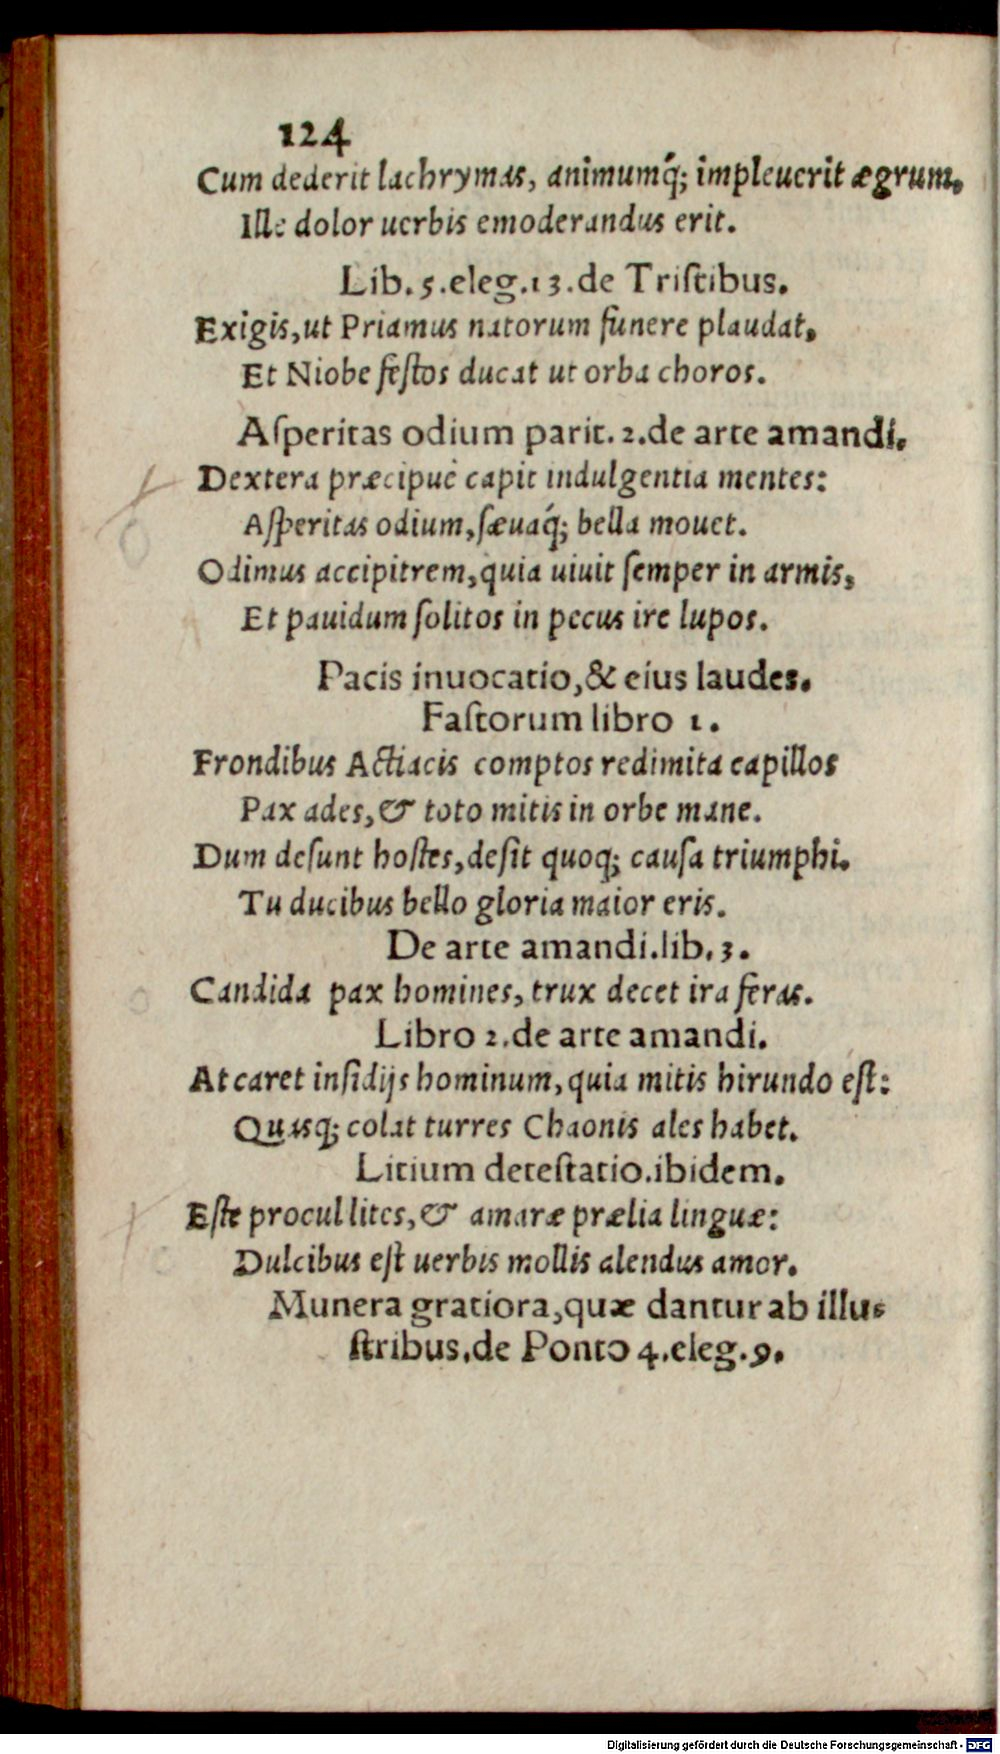 124
Cum dederit lachrymas, animumq́; impleuerit ægrum,
Ille dolor uerbis emoderandus erit.
Lib. 5.eleg.13.de Triſtibus.
Exigis,ut Priamus natorum funere plaudat,
Et Niobe feſtos ducat ut orba choros.
Aſperitas odium parit. 2.de arte amandi.
Dextera præcipuè capit indulgentia mentes:
Aſperitas odium,ſæuaq́; bella mouet.
Odimus accipitrem,quia uiuit ſemper in armis,
Et pauidum ſolitos in pecus ire lupos.
Pacis inuocatio,& eius laudes.
Faſtorum libro 1.
Frondibus Actiacis comptos redimita capillos
Pax ades,& toto mitis in orbe mane.
Dum deſunt hoſtes,deſit quoq; cauſa triumphi.
Tu ducibus bello gloria maior eris.
De arte amandi.lib.3.
Candida pax homines, trux decet ira feras.
Libro 2.de arte amandi.
At caret inſidijs hominum,quia mitis hirundo eſt:
Quasq; colat turres Chaonis ales habet.
Litium deteſtatio.ibidem.
Eſte procul lites,& amaræ prælia linguæ:
Dulcibus eſt uerbis mollis alendus amor.
Munera gratiora,quæ dantur ab illu-
ſtribus.de Ponto 4.eleg.9.
Digitalisierung gefördert durch die Deutsche Forschungsgemeinschaft - DFG